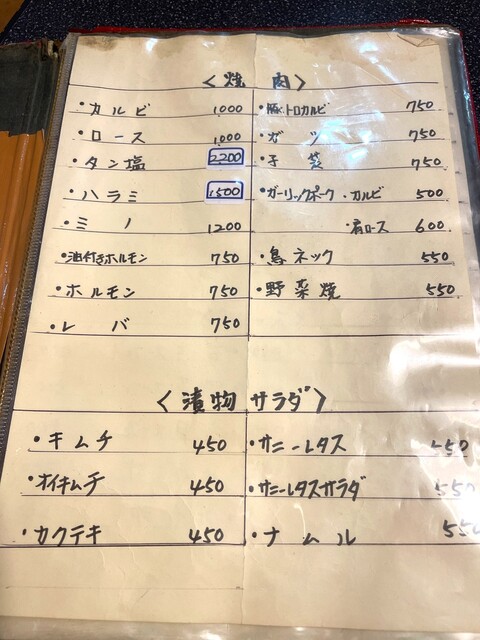 <焼肉>
・カルビ 1,000
・ロース 1,000
・タン塩 2,200
・ハラミ 1500
・ミノ 1200
・油付きホルモン 750
・ホルモン 750
・レバ 750
・豚トロカルビ 750
・ガツ 750
・子袋 750
・ガーリックポーク・カルビ 500
・肩ロース 600
・鳥ネック 550
・野菜焼 550
<漬物サラダ>
・キムチ 450
・オイキムチ 450
・カクテキ 450
・サニーレタス 550
・サニーレタスサラダ 550
・ナムル 550